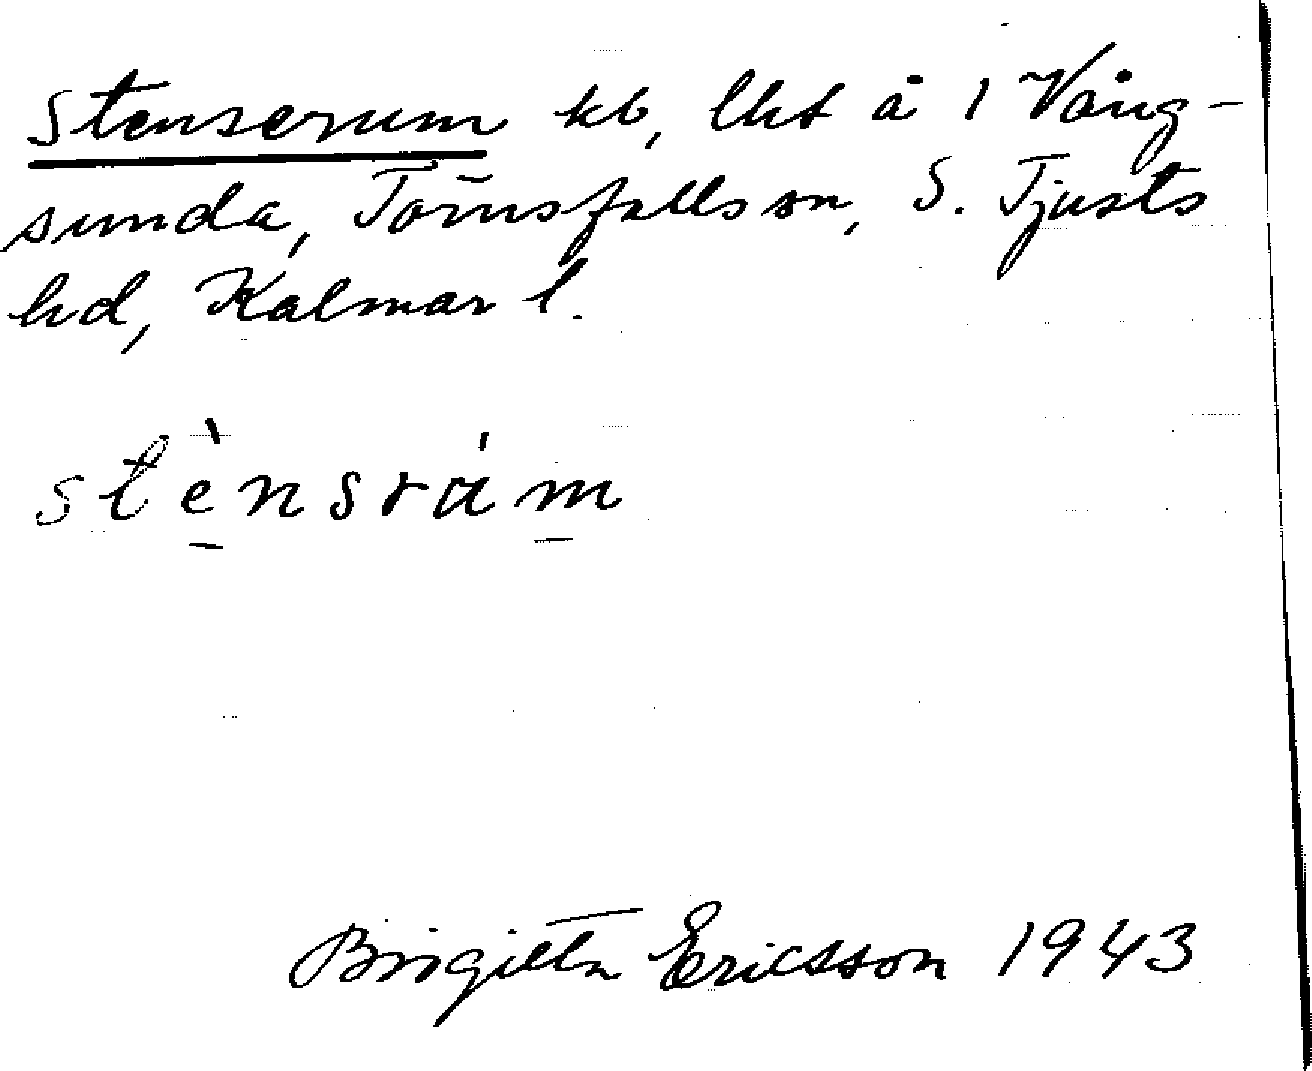 Stenserum kb, lht å 1 Vång-
sunda, Törnsfalls sn, S. Tjusts
hd, Kalmar l.
stènsrám
Birgitta Ericsson 1943